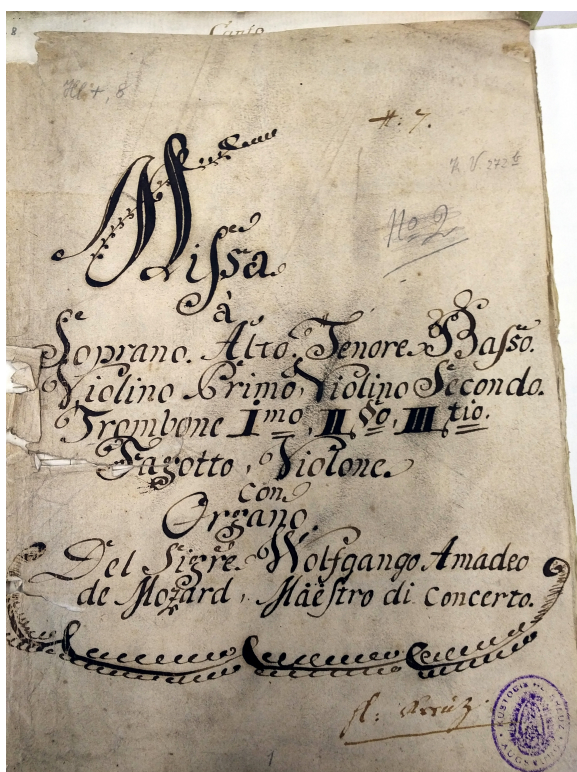 8
Canto
Hl + , 8
#: 7.
K. V. 272 b
No 2
Missa
à
Soprano. Alto. Tenore. Basso.
Violino Primo, Violino Secondo.
Trombone Imo, II do, III tio.
Fagotto, Violone.
con
Organo.
Del Sigre Wolfgango Amadeo
de Mozard, Maëstro di Concerto.
hl: Kreuz
1